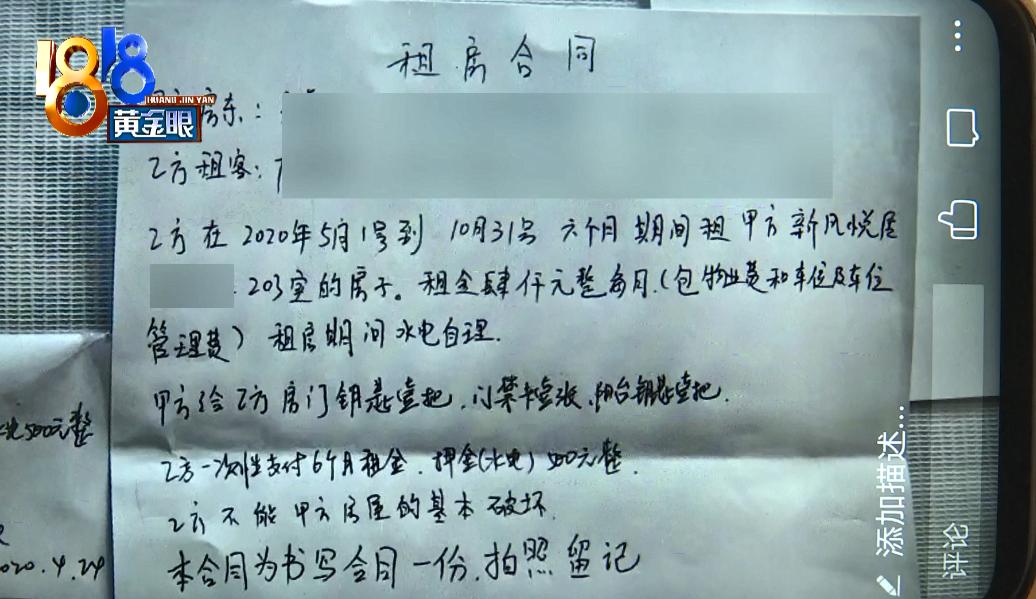 租房合同
1818
HUANG JIN YAN
黄金眼
房东:
乙方租客:
乙方在2020年5月1号到10月31号六个月期间租甲方新风悦居
203室的房子。租金肆仟元整每月.(包物业费和车位及车位
管理费)租房期间水电自理.
甲方给乙方房门钥匙壹把.门禁卡壹张.阳台钥匙壹把.
乙方一次性支付6个月租金.押金(水电)500元整.
乙方不能甲方房屋的基本破坏.
本合同为书写合同一份.拍照留记
500元整
2020.4.24
添加描述...
评论